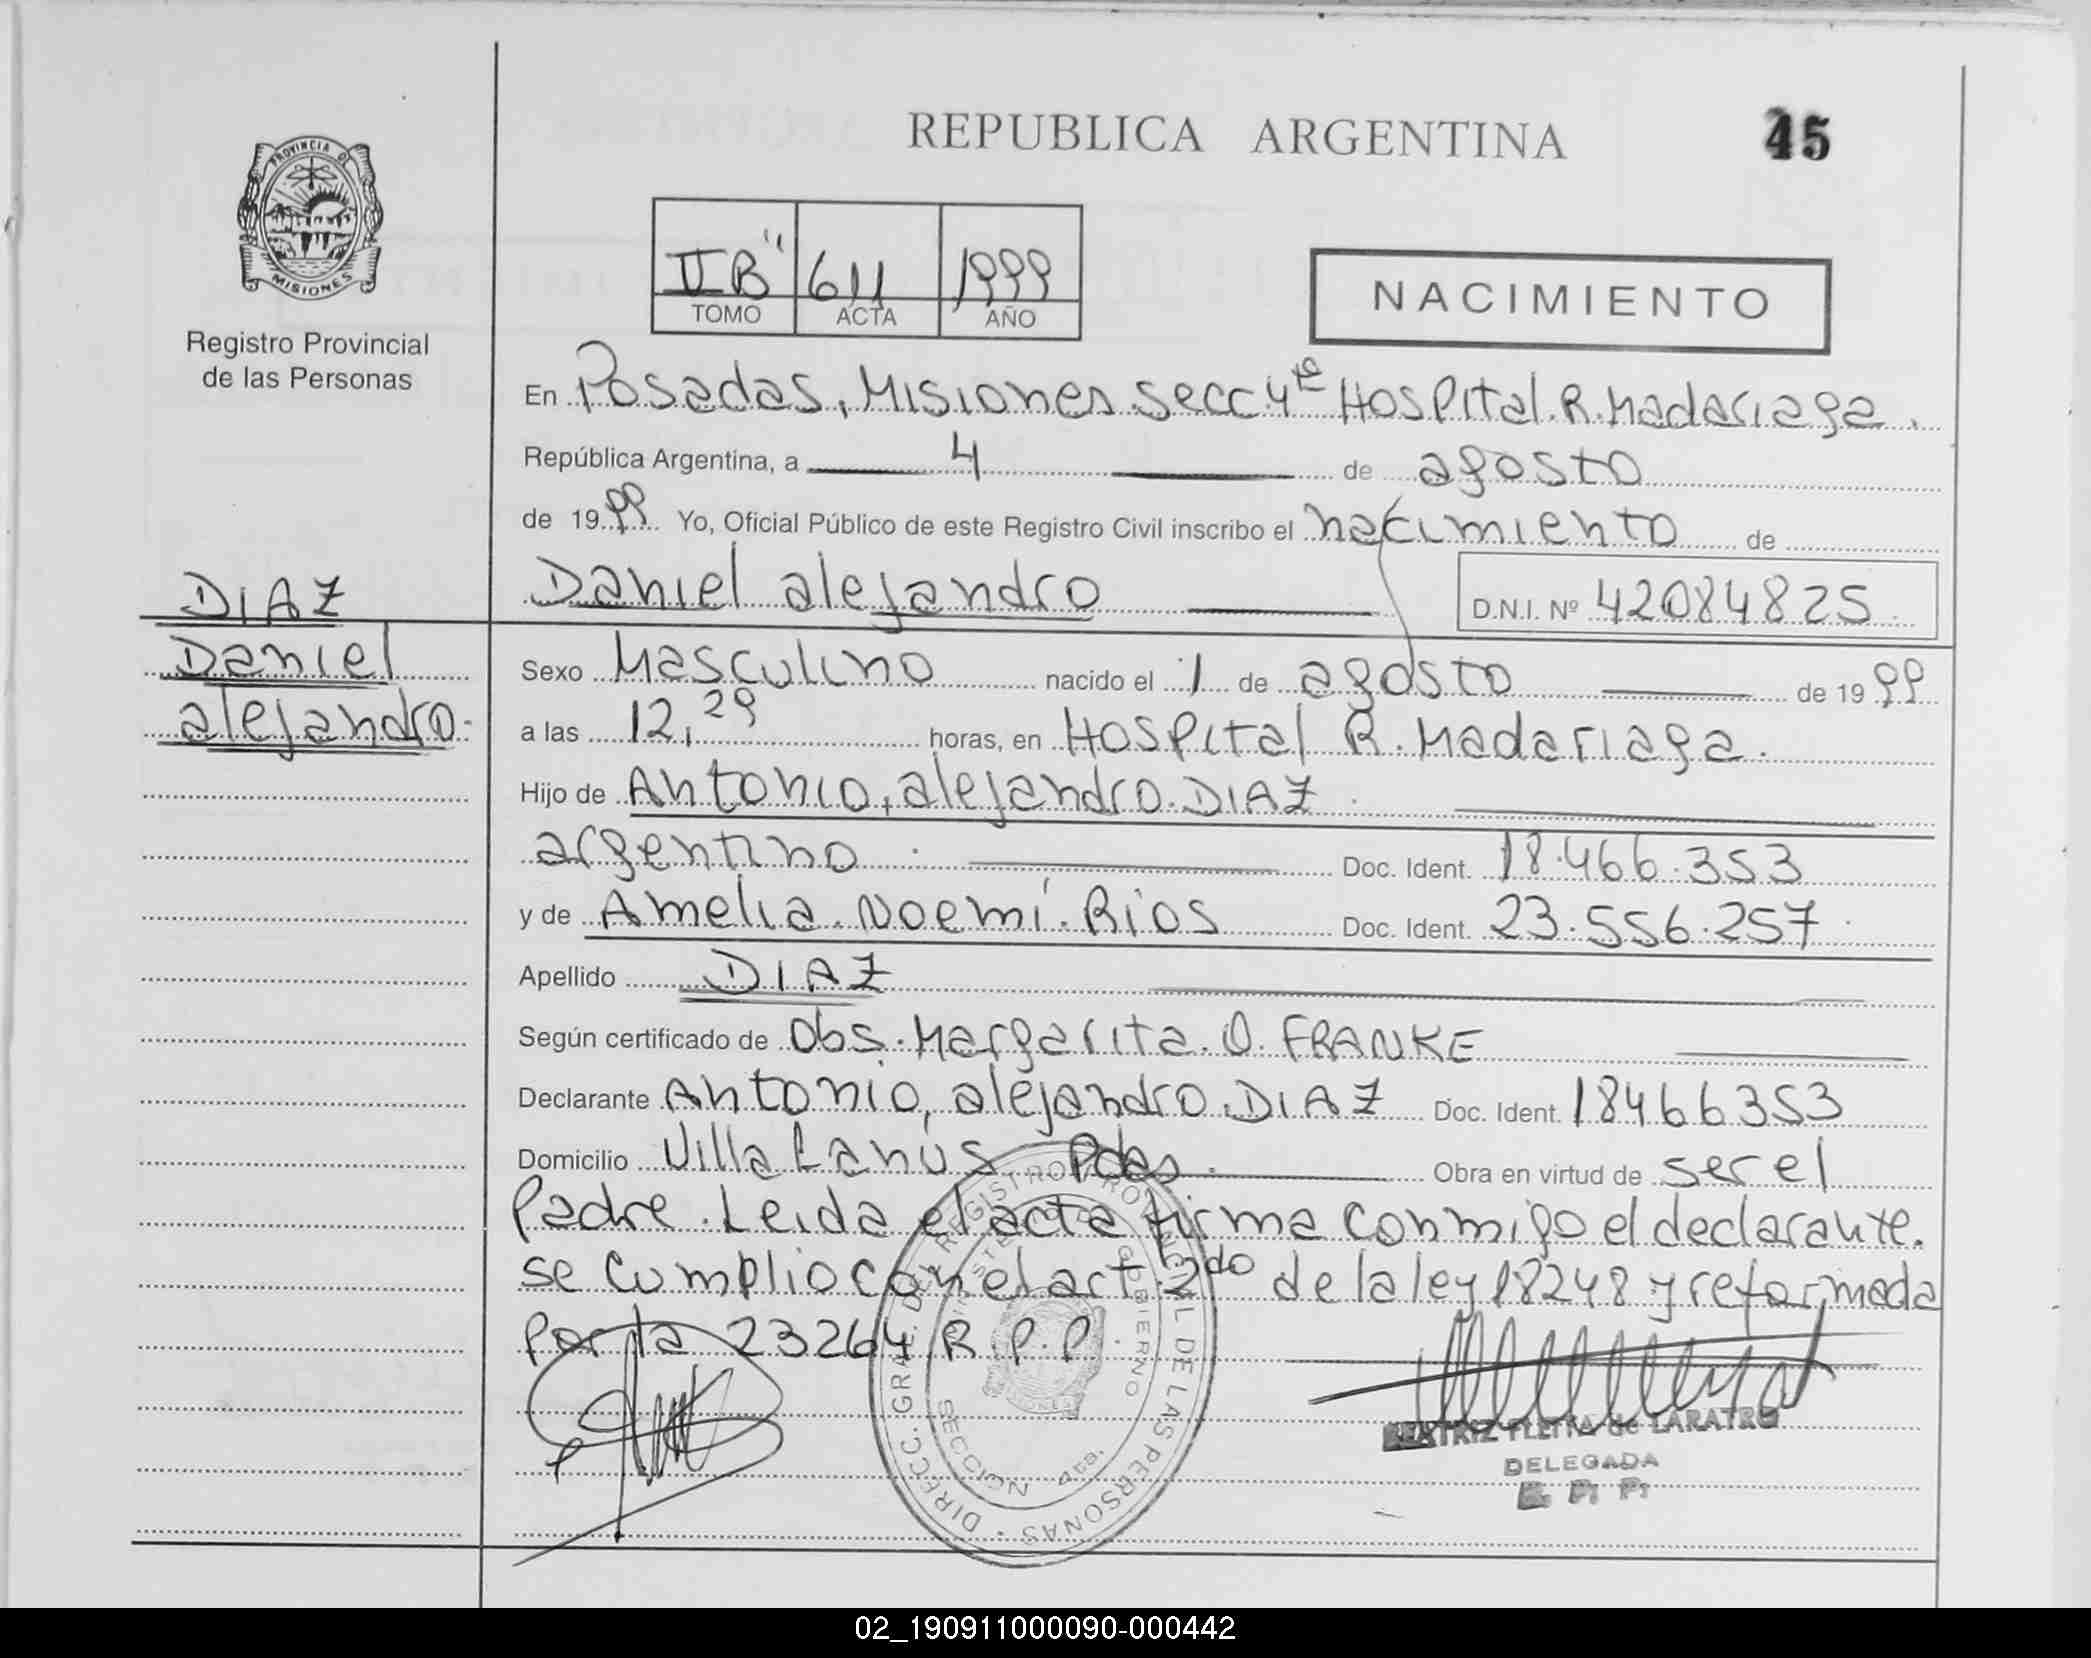 REPUBLICA ARGENTINA
45
PROVINCIA DE
MISIONES
Registro Provincial
de las Personas
II B" 611 1999
TOMO ACTA AÑO
NACIMIENTO
En Posadas, Misiones secc 4ta Hospital R. Madariaga.
República Argentina, a 4 de agosto
de 1999 Yo, Oficial Público de este Registro Civil inscribo el nacimiento de
Daniel alejandro
D.N.I. Nº 42084825
DIAZ
Daniel
alejandro.
Sexo Masculino nacido el 1 de agosto de 1999
a las 12,29 horas, en Hospital R. Madariaga.
Hijo de Antonio, alejandro. DIAZ
argentino Doc. Ident. 18.466.353
y de Amelia. Noemí. Rios Doc. Ident. 23.556.257
Apellido DIAZ
Según certificado de Obs. Margarita. O. FRANKE
Declarante Antonio, alejandro. DIAZ Doc. Ident. 18466353
Domicilio Villa Lanús Pdas. Obra en virtud de ser el
Padre. Leida el acta firma conmigo el declarante.
se cumplio con el art. 2do de la ley 18248 y reformada
por la 23264 R.P.P.
DIRECC. GRAL. DEL REGISTRO PROVINCIAL DE LAS PERSONAS
GOBIERNO
SECCION 4ta.
BEATRIZ de LARATRO
DELEGADA
R. P. P.
02_190911000090-000442